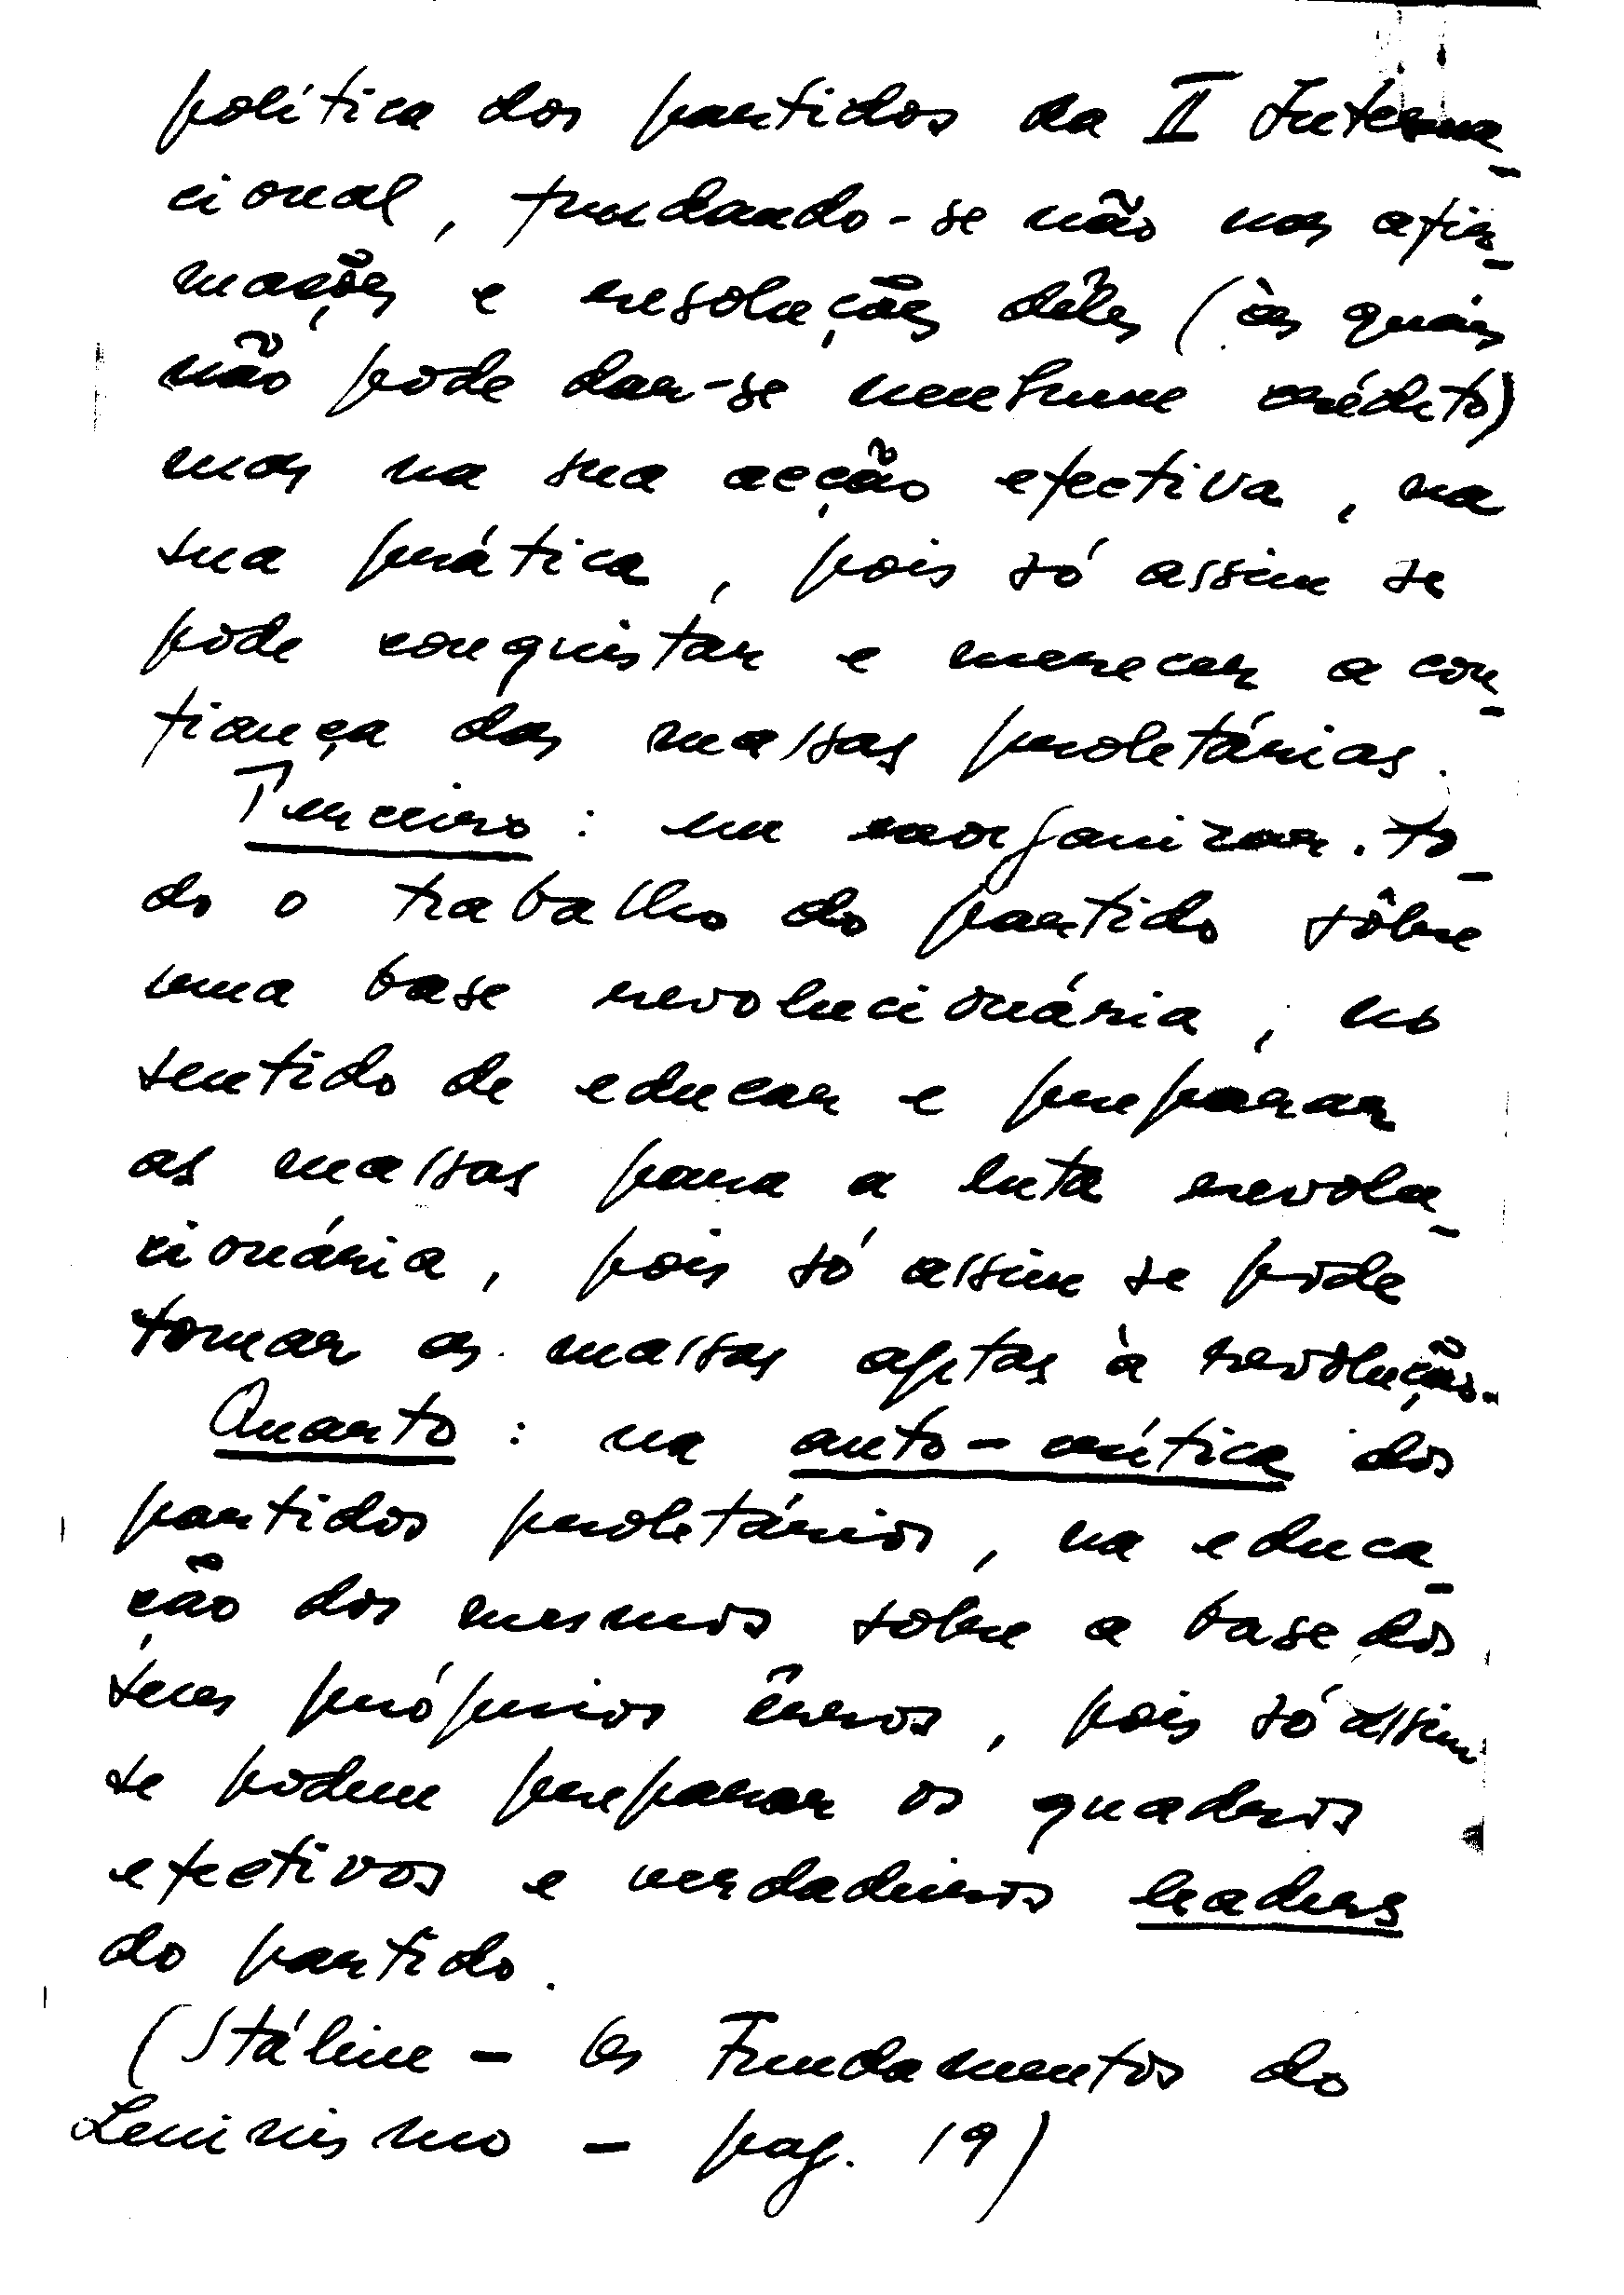 política dos partidos da II Interna-
cional, fundando-se não nas afir-
mações e resoluções dêles (às quais
não pode dar-se nenhum crédito)
mas na sua acção efectiva, na
sua prática, pois só assim se
pode conquistar e merecer a con-
fiança das massas proletárias.
Terceiro: em reorganizar to-
do o trabalho do partido sôbre
uma base revolucionária, no
sentido de educar e preparar
as massas para a luta revolu-
cionária, pois só assim se pode
tornar as massas aptas à revolução.
Quarto: na auto-crítica dos
partidos proletários, na educa-
ção dos mesmos sobre a base dos
seus próprios êrros, pois só assim
se podem preparar os quadros
efectivos e verdadeiros leaders
do partido.
(Stáline - Os Fundamentos do
Leninismo - pag. 19)